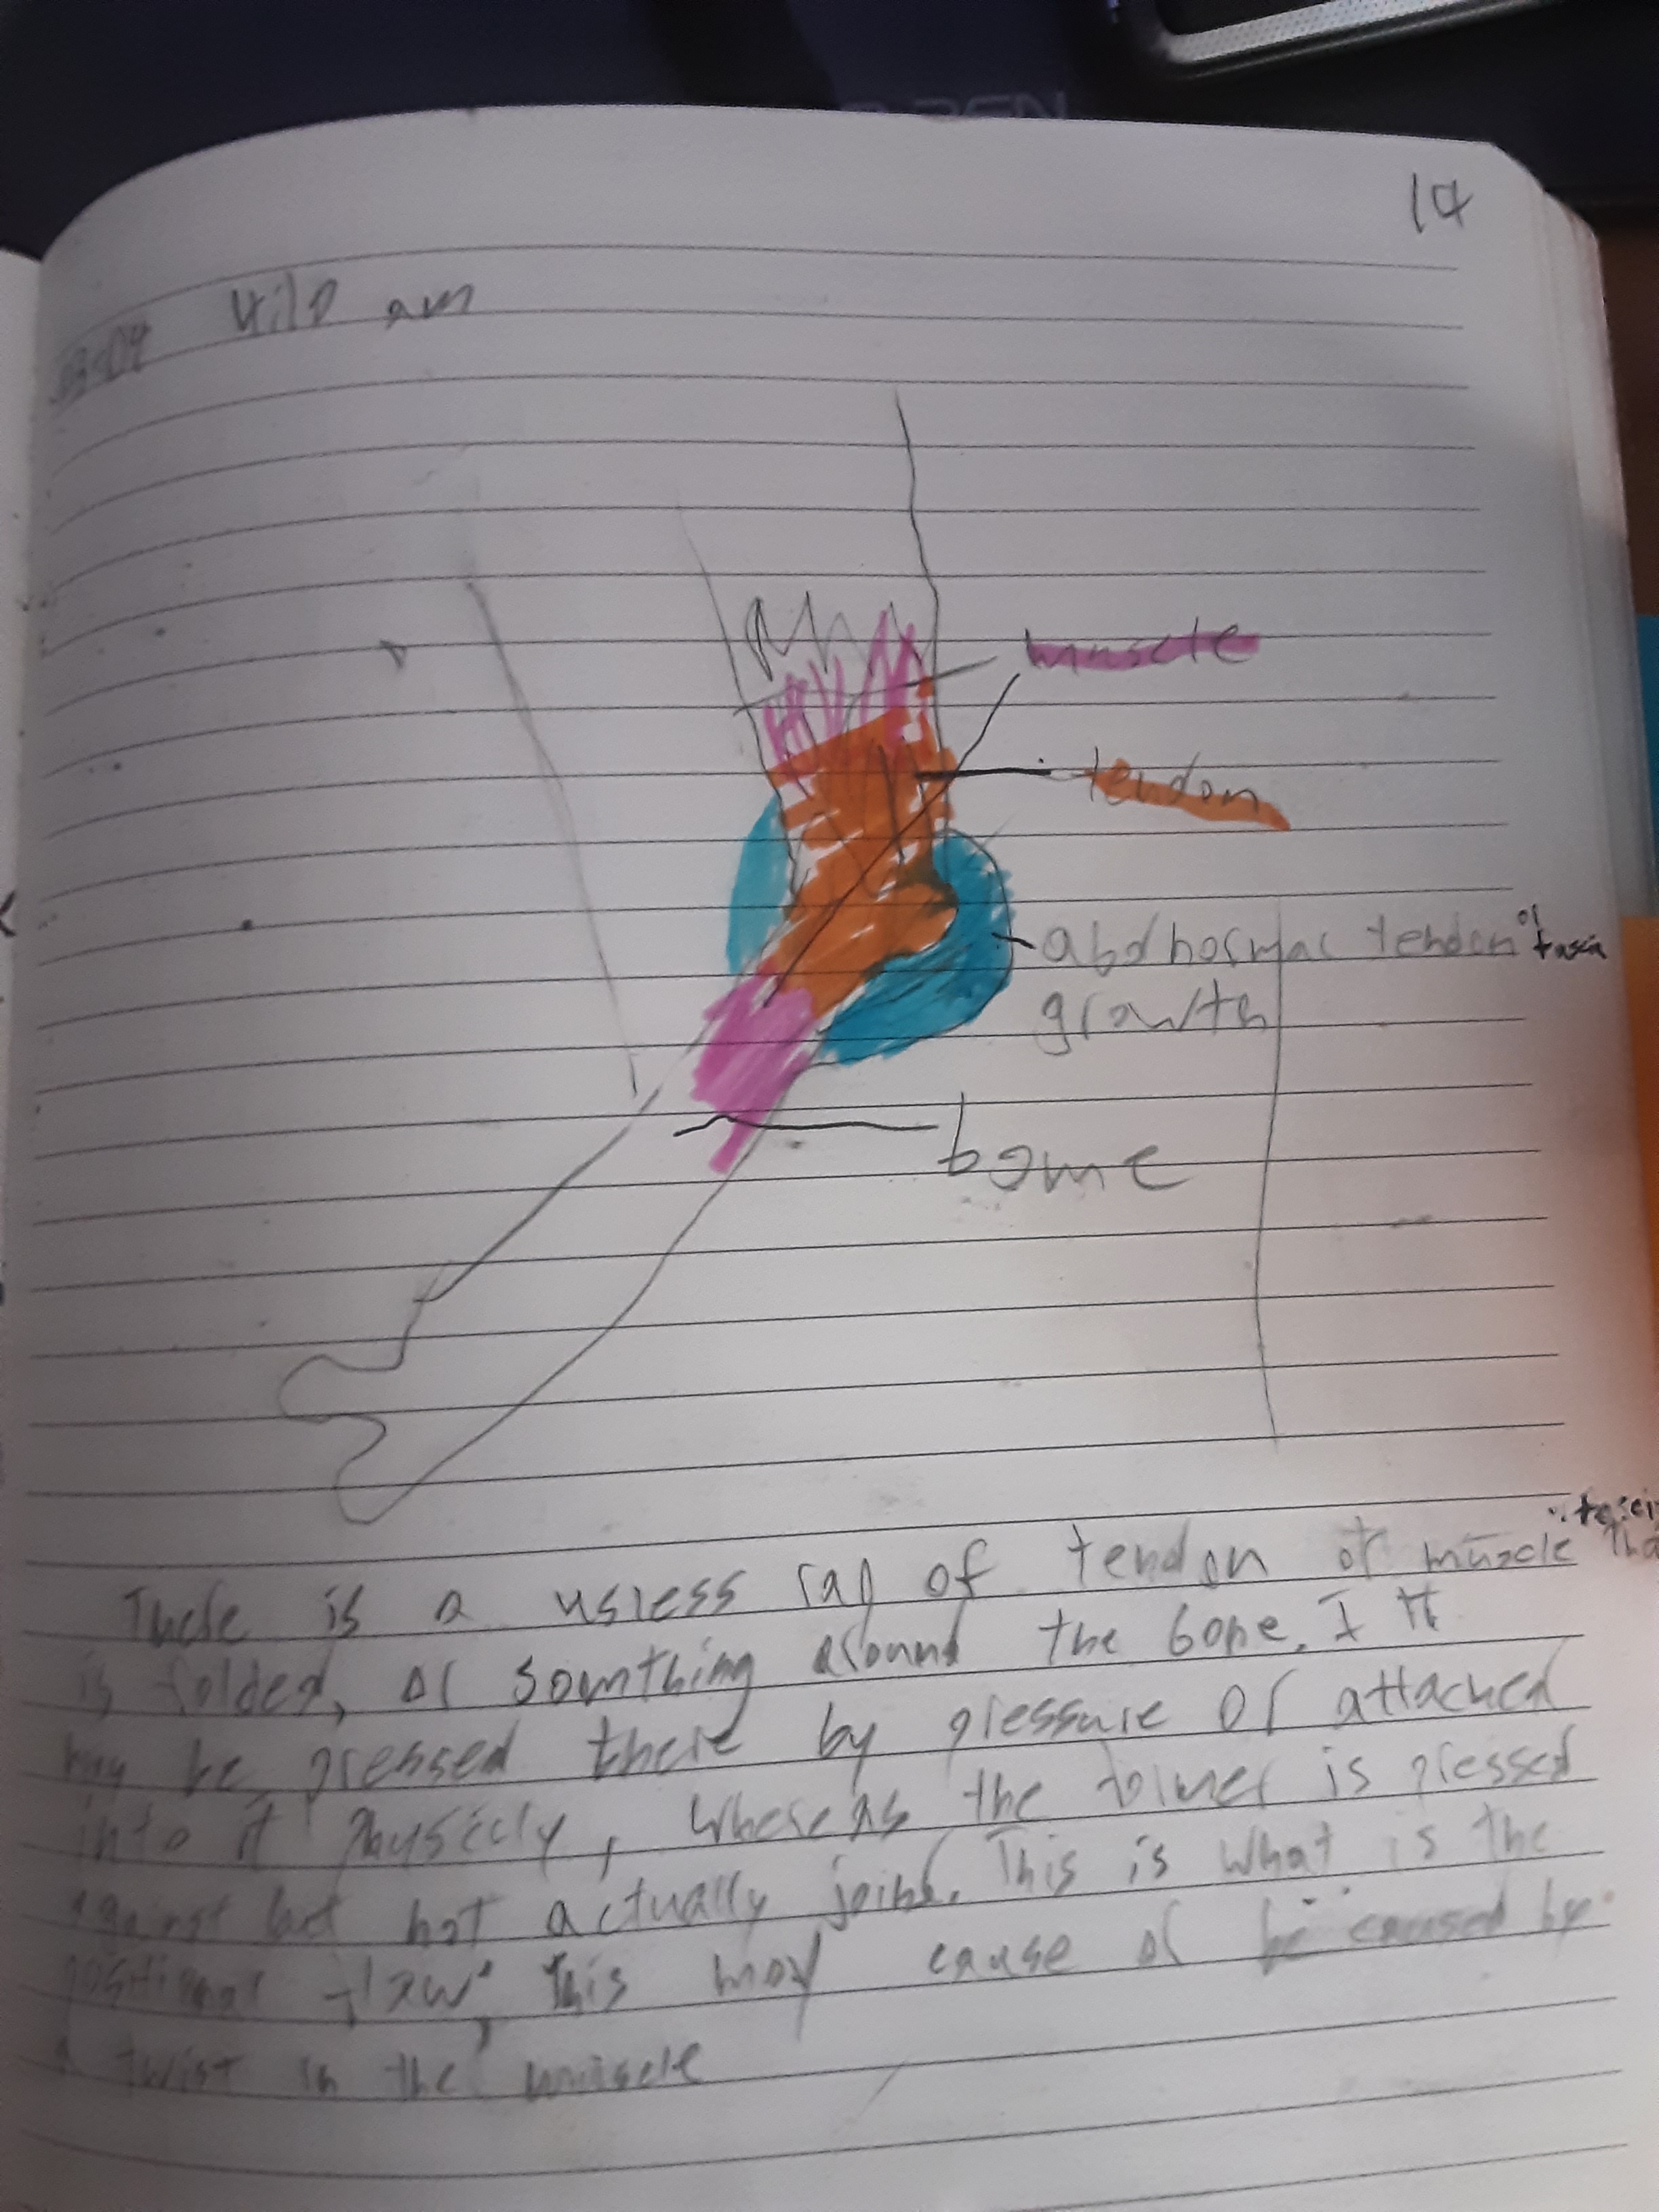 14
muscle
tendon
abdnormal tendon or fascia
growth
bome
There is a usless rag of tendon or muscle
is folded, or somthing around the bone. I It
may be pressed there by pressure or attached
into it physicly, whereas the former is pressed
against but not actually joind. This is what is the
positional flaw. This may cause or be caused by
a twist in the muscle